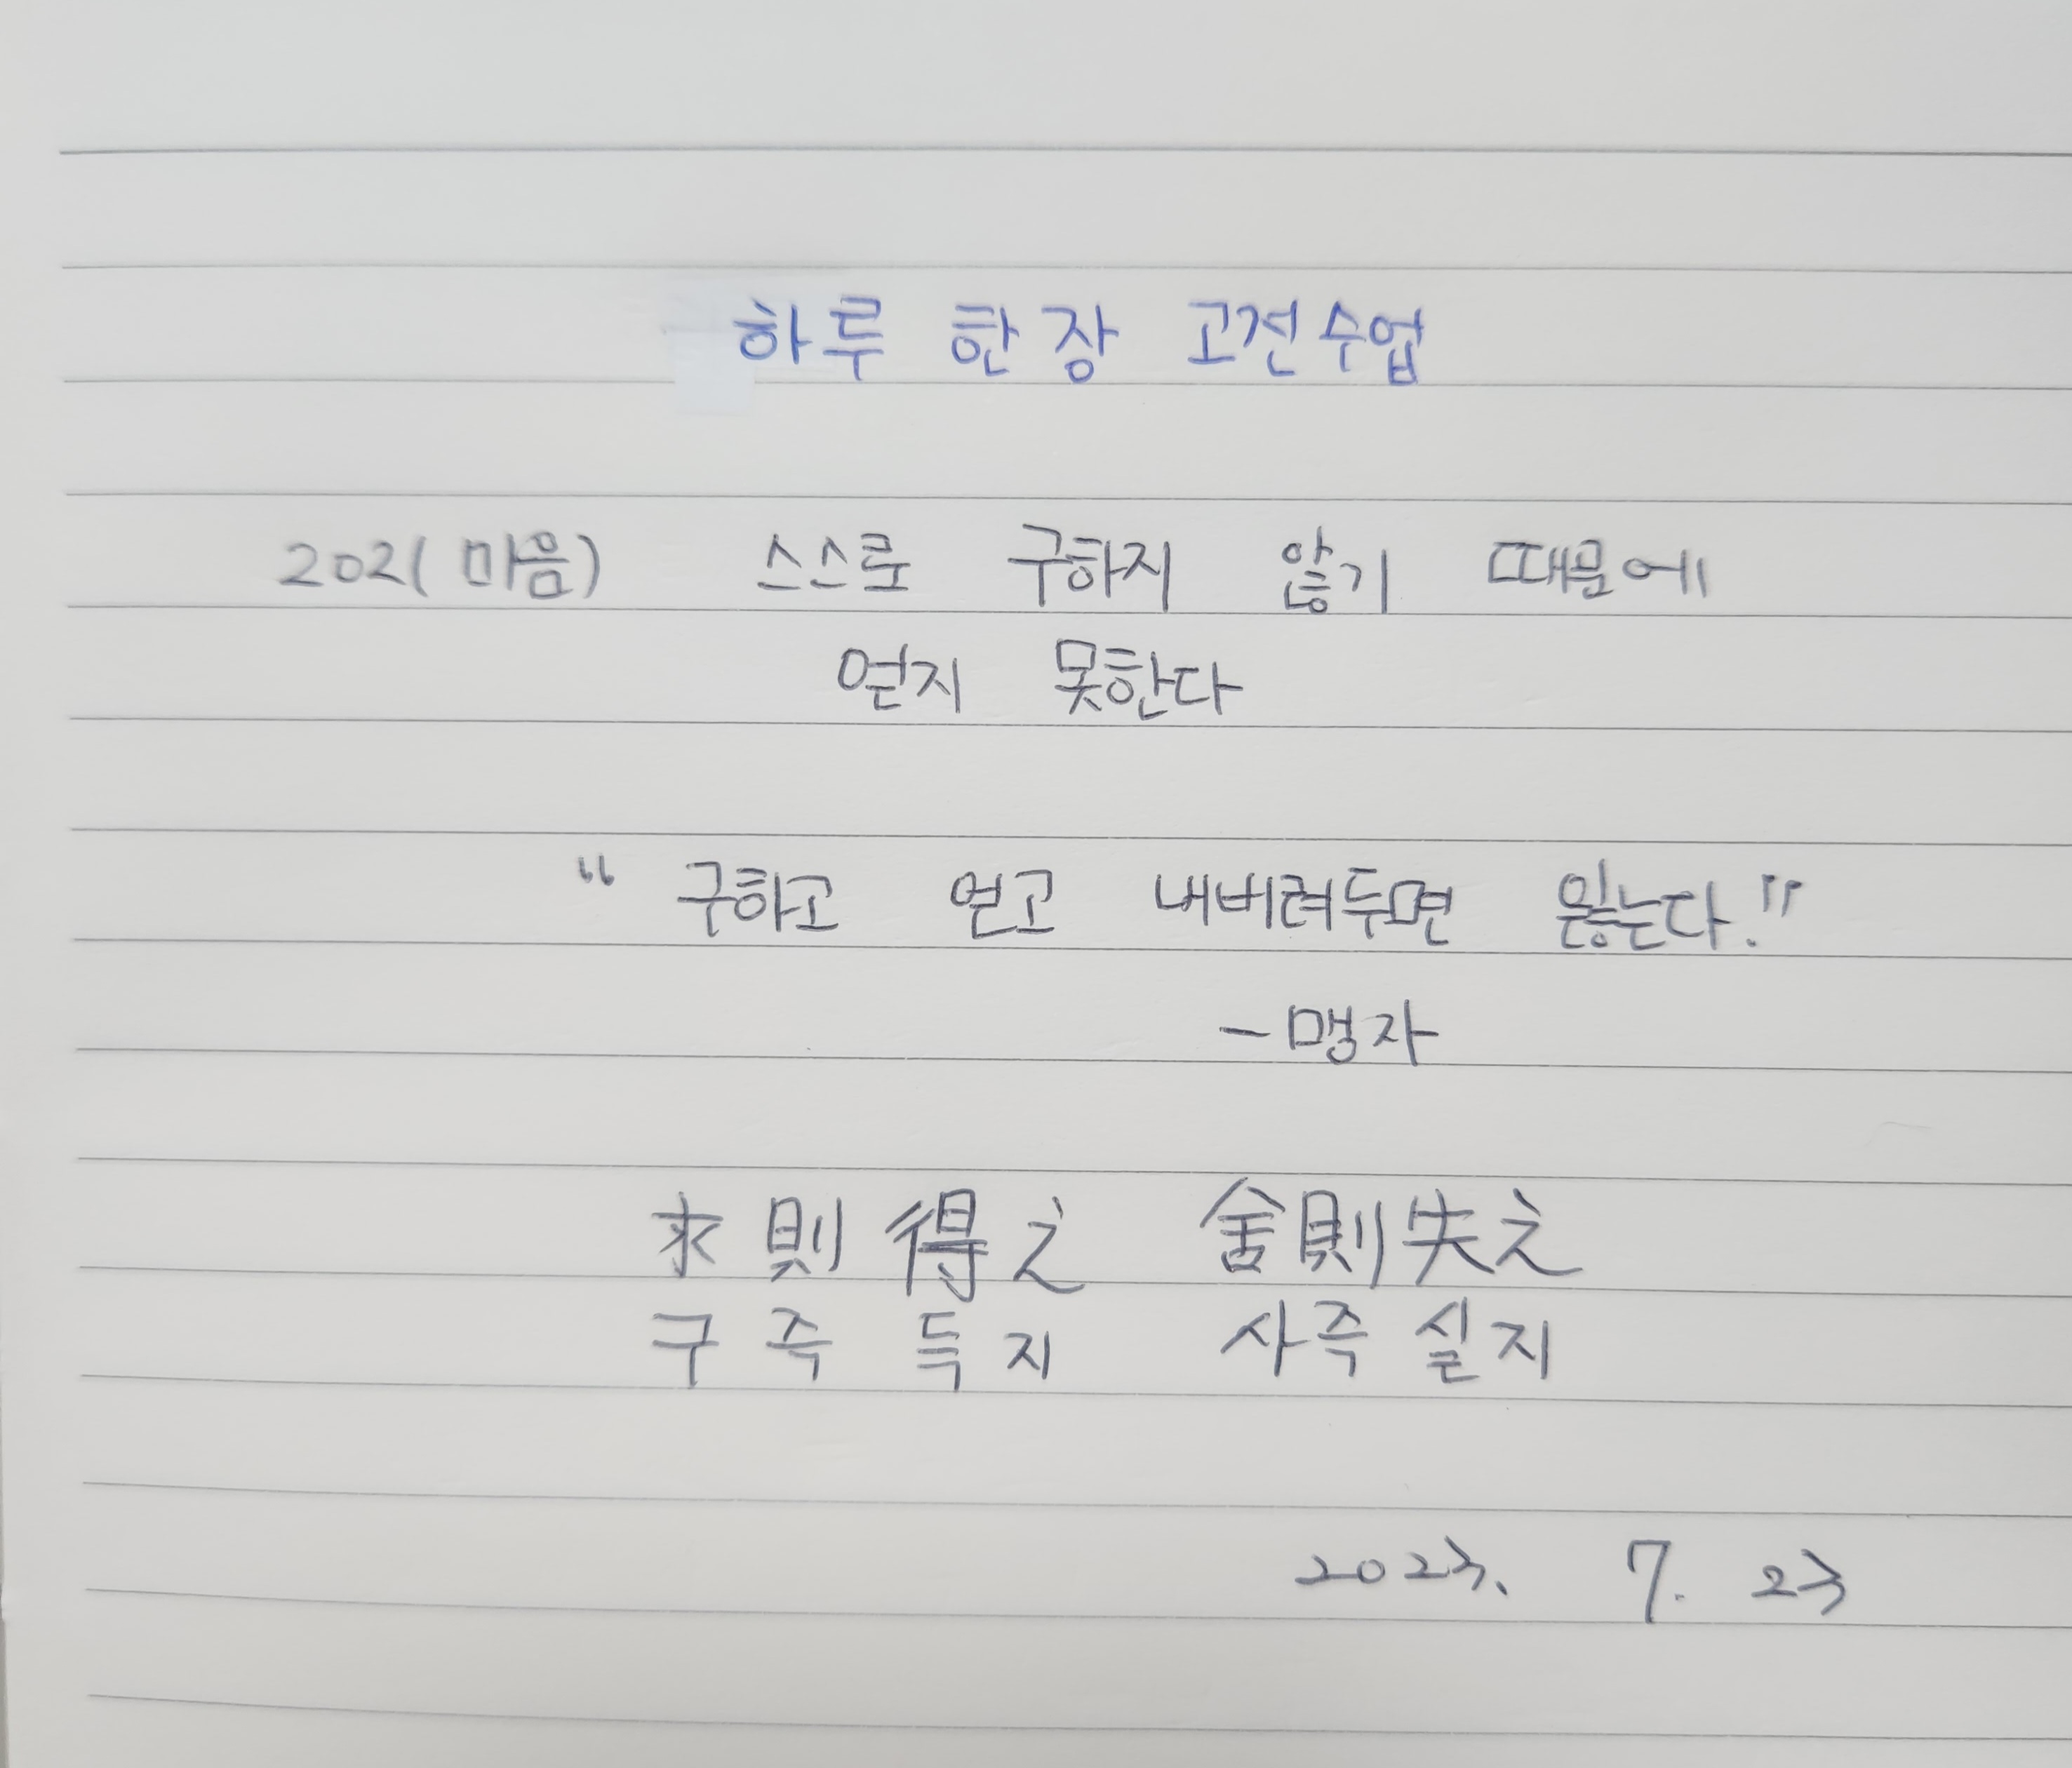 하루 한 장 고전수업
202(마음) 스스로 구하지 않기 때문에
얻지 못한다
“ 구하고 얻고 내버려두면 잃는다.”
- 맹자
求則得之 舍則失之
구즉득지 사즉실지
2023. 7. 23